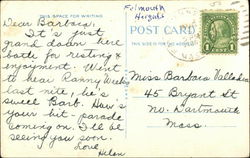 THIS SPACE FOR WRITING
Falmouth
Heights
POST CARD
THIS SIDE IS FOR THE ADDRESS
1
Dear Barbara,
It's just
grand down here
both for resting &
enjoyment. Went
to hear Ranny Weeks
last nite, he's
swell Barb. How's
your hit-parade
coming on. I'll be
seeing you soon.
Love
Helen
Miss Barbara
45 Bryant St
No. Dartmouth
Mass.